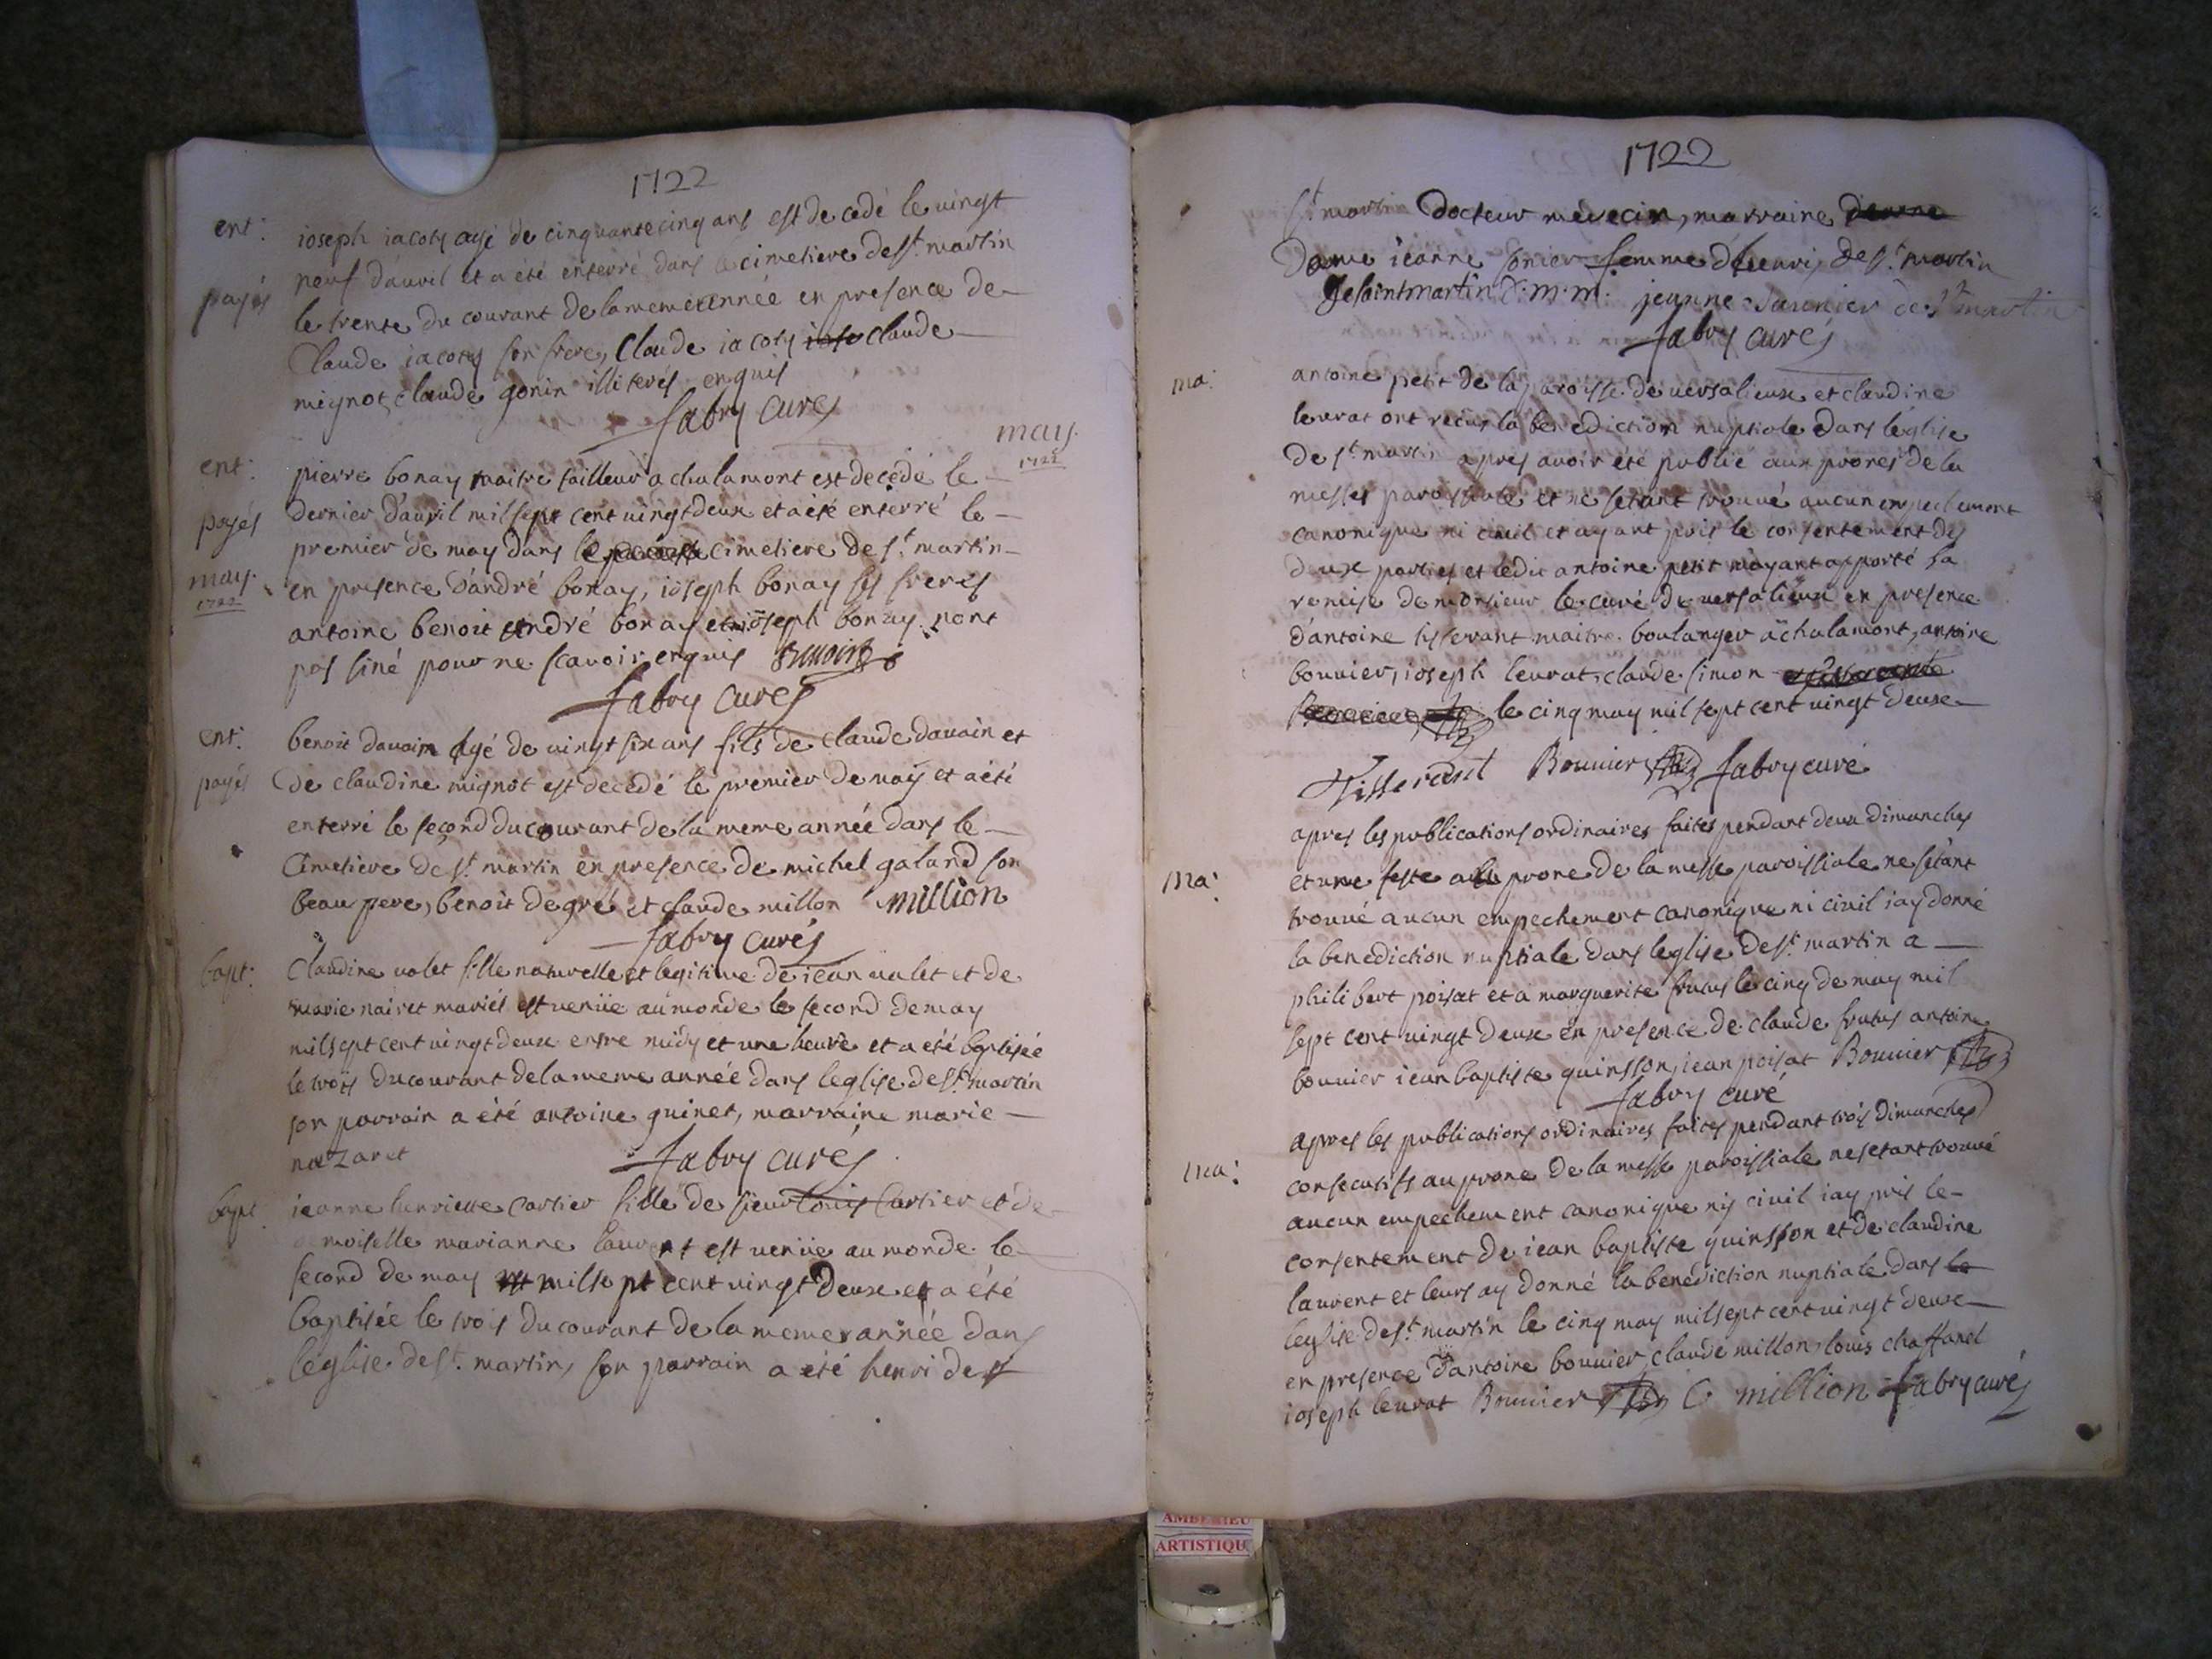 1722
ent: ioseph iacoty agé de cinquante cinq ans est decedé le uingt
neuf dauril et a été enterré dans le cimetiere de st. martin
payés le trente du courant de la meme année en presence de
Claude iacoty son frere, Claude iacoty claude
mignot, claude gonin illiterés enquis
fabry curé
may.
1722
ent: pierre bonay maitre tailleur a chalamont est decedé le
payés dernier dauril mil sept cent uingt deux et a été enterré le
premier de may dans le cimetiere de st. martin
may. en presence dandré bonay, ioseph bonay ses freres
1722 antoine benoit andré bonay et ioseph bonay nont
pas siné pour ne scauoir enquis Benoist
fabry curé
ent: benoit dauain agé de uingt six ans fils de claude dauain et
payés de claudine mignot est decedé le premier de may et a été
enterré le second du courant de la meme année dans le
Cimetiere de st. martin en presence de michel galand son
beau pere, benoit degré et claude millon million
fabry curé
bapt: Claudine ualet fille naturelle et legitime de iean ualet et de
marie nairet mariés est uenüe au monde le second de may
mil sept cent uingt deux entre midy et une heure et a été baptisée
le trois du courant de la meme année dans leglise de st. martin
son parrain a été antoine guinet, marraine marie
nazaret fabry curé
bapt. ieanne henriette Cartier fille de sieur louis Cartier et de
demoiselle marianne laurent est uenüe au monde le
second de may mil sept cent uingt deux et a été
baptisée le trois du courant de la meme année dans
leglise de st. martin, son parrain a été henri de st
1722
st martin Docteur medecin, marraine
Dame ieanne sonier femme dhenri de st. martin
De saint martin D. m. m. jeanne saunier de st martin
fabry curé
ma: antoine petit de la paroisse de uersalieux et claudine
leurat ont recus la benediction nuptiale dans léglise
de st. martin apres auoir été publié aux prones de la
messes paroissiale et ne setant trouué aucun empechement
canonique ni ciuil et ayant pris le consentement des
deux parties et ledit antoine petit mayant apporté sa
remise de monsieur le curé de uersalieux en presence
dantoine tisserant maitre boulanger a chalamont, antoine
bouuier, ioseph leurat, claude simon
le cinq may mil sept cent uingt deux
Tisserant Bouuier fabry curé
apres les publications ordinaires faites pendant deux dimanches
ma: et une feste au prone de la messe paroissiale ne sétant
trouué aucun empechement canonique ni ciuil iay donné
la benediction nuptiale dans leglise de st. martin a
philibert poisat et a marguerite frutus le cinq de may mil
sept cent uingt deux en presence de claude frutus antoine
bouuier iean baptiste guinsson, iean poisat Bouuier
fabry curé
apres les publications ordinaires faites pendant trois dimanches
ma: consecutifs au prone de la messe paroissiale ne setant trouué
aucun empechement canonique ny ciuil iay pris le
consentement de iean baptiste guinsson et de claudine
laurent et leurs ay donné la benediction nuptiale dans le
leglise de st. martin le cinq may mil sept cent uingt deux
en presence dantoine bouuier, claude millon, louis chaffanel
ioseph leurat Bouuier C million fabry curé
AMBERIEU
ARTISTIQU